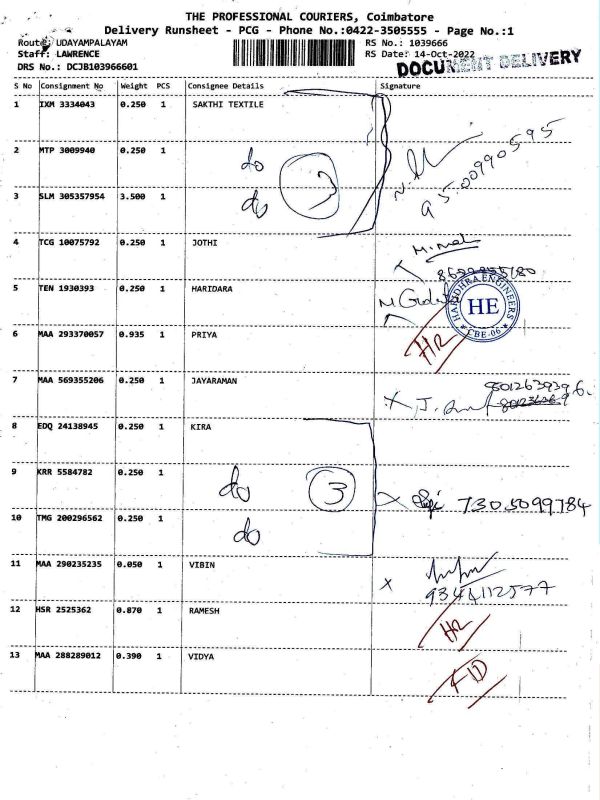 THE PROFESSIONAL COURIERS, Coimbatore
Delivery Runsheet - PCG - Phone No.:0422-3505555 - Page No.:1
Route: UDAYAMPALAYAM RS No.: 1039666
Staff: LAWRENCE RS Date: 14-Oct-2022
DRS No.: DCJB103966601 DOCUMENT DELIVERY
S No Consignment No Weight PCS Consignee Details Signature
1 IXM 3334043 0.250 1 SAKTHI TEXTILE
2 MTP 3009940 0.250 1 do 3
9500990595
3 SLM 305357954 3.500 1 do
4 TCG 10075792 0.250 1 JOTHI
5 TEN 1930393 0.250 1 HARIDARA
HARIDHRA ENGINEERS HE CBE-06
6 MAA 293370057 0.935 1 PRIYA HR
7 MAA 569355206 0.250 1 JAYARAMAN
8 EDQ 24138945 0.250 1 KIRA
9 KRR 5584782 0.250 1 do 3
7305099784
10 TMG 200296562 0.250 1 do
11 MAA 290235235 0.050 1 VIBIN
12 HSR 2525362 0.870 1 RAMESH HR
13 MAA 288289012 0.390 1 VIDYA FID